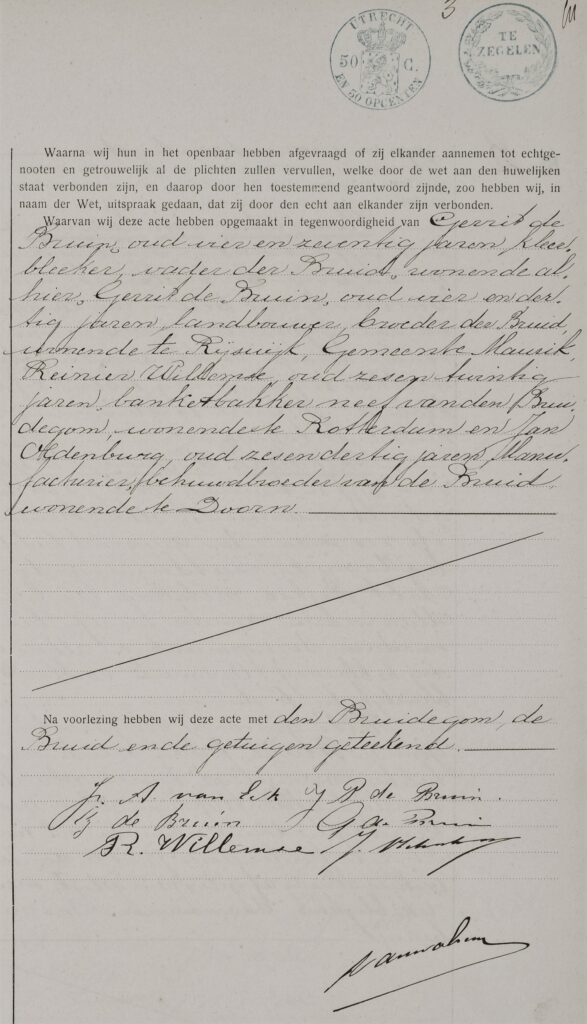 3
UTRECHT
50 C.
EN 50 OPCENTEN
TE
ZEGELEN
Waarna wij hun in het openbaar hebben afgevraagd of zij elkander aannemen tot echtge-
nooten en getrouwelijk al de plichten zullen vervullen, welke door de wet aan den huwelijken
staat verbonden zijn, en daarop door hen toestemmend geantwoord zijnde, zoo hebben wij, in
naam der Wet, uitspraak gedaan, dat zij door den echt aan elkander zijn verbonden.
Waarvan wij deze acte hebben opgemaakt in tegenwoordigheid van Gerrit de
Bruin, oud vier en zeventig jaren, kleer-
bleeker, vader der Bruid, wonende al-
hier, Gerrit de Bruin, oud vier en der-
tig jaren, landbouwer, broeder der Bruid,
wonende te Rijswijk, Gemeente Maurik,
Reinier Willemse, oud zes en twintig
jaren, banketbakker neef van den Brui-
degom, wonende te Rotterdam en Jan
Oldenburg, oud zes en dertig jaren, Manu-
facturier, behuwdbroeder van de Bruid
wonende te Doorn.
Na voorlezing hebben wij deze acte met den Bruidegom, de
Bruid en de getuigen geteekend.
A van Esk J B de Bruin.
G de Bruin G de Bruin
R. Willemse J.